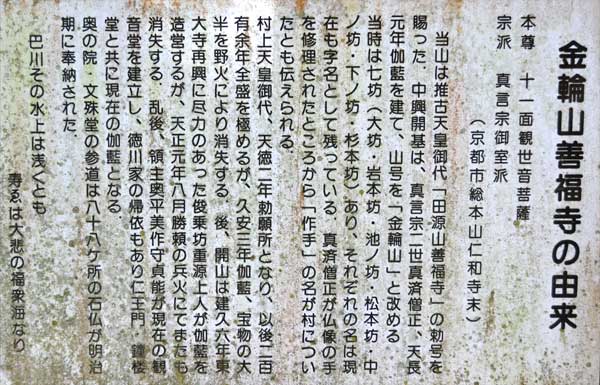 金輪山善福寺の由来
本尊 十一面観世音菩薩
宗派 真言宗御室派
(京都市総本山仁和寺末)
当山は推古天皇御代「田源山善福寺」の勅号を
賜った。中興開基は、真言宗二世真済僧正、天長
元年伽藍を建て、山号を「金輪山」と改める
当時は七坊(大坊・岩本坊・池ノ坊・松本坊・中
ノ坊・下ノ坊・杉本坊)あり、それぞれの名は現
在も字名として残っている 真済僧正が仏像の手
を修理されたところから「作手」の名が村につい
たとも伝えられる。
村上天皇御代、天徳二年勅願所となり、以後二百
有余年全盛を極めるが、久安三年伽藍、宝物の大
半を野火により消失する 後、開山は建久六年東
大寺再興に尽力のあった俊乗坊重源上人が伽藍を
造営するが、天正元年八月勝頼の兵火にてまたも
消失する。乱後、領主奥平美作守貞能が現在の観
音堂を建立し、徳川家の帰依もあり仁王門 鐘楼
堂と共に現在の伽藍となる。
奥の院・文殊堂の参道は八十八ケ所の石仏が明治
期に奉納された。
巴川その水上は浅くとも
寿ゑは大悲の福衆海なり